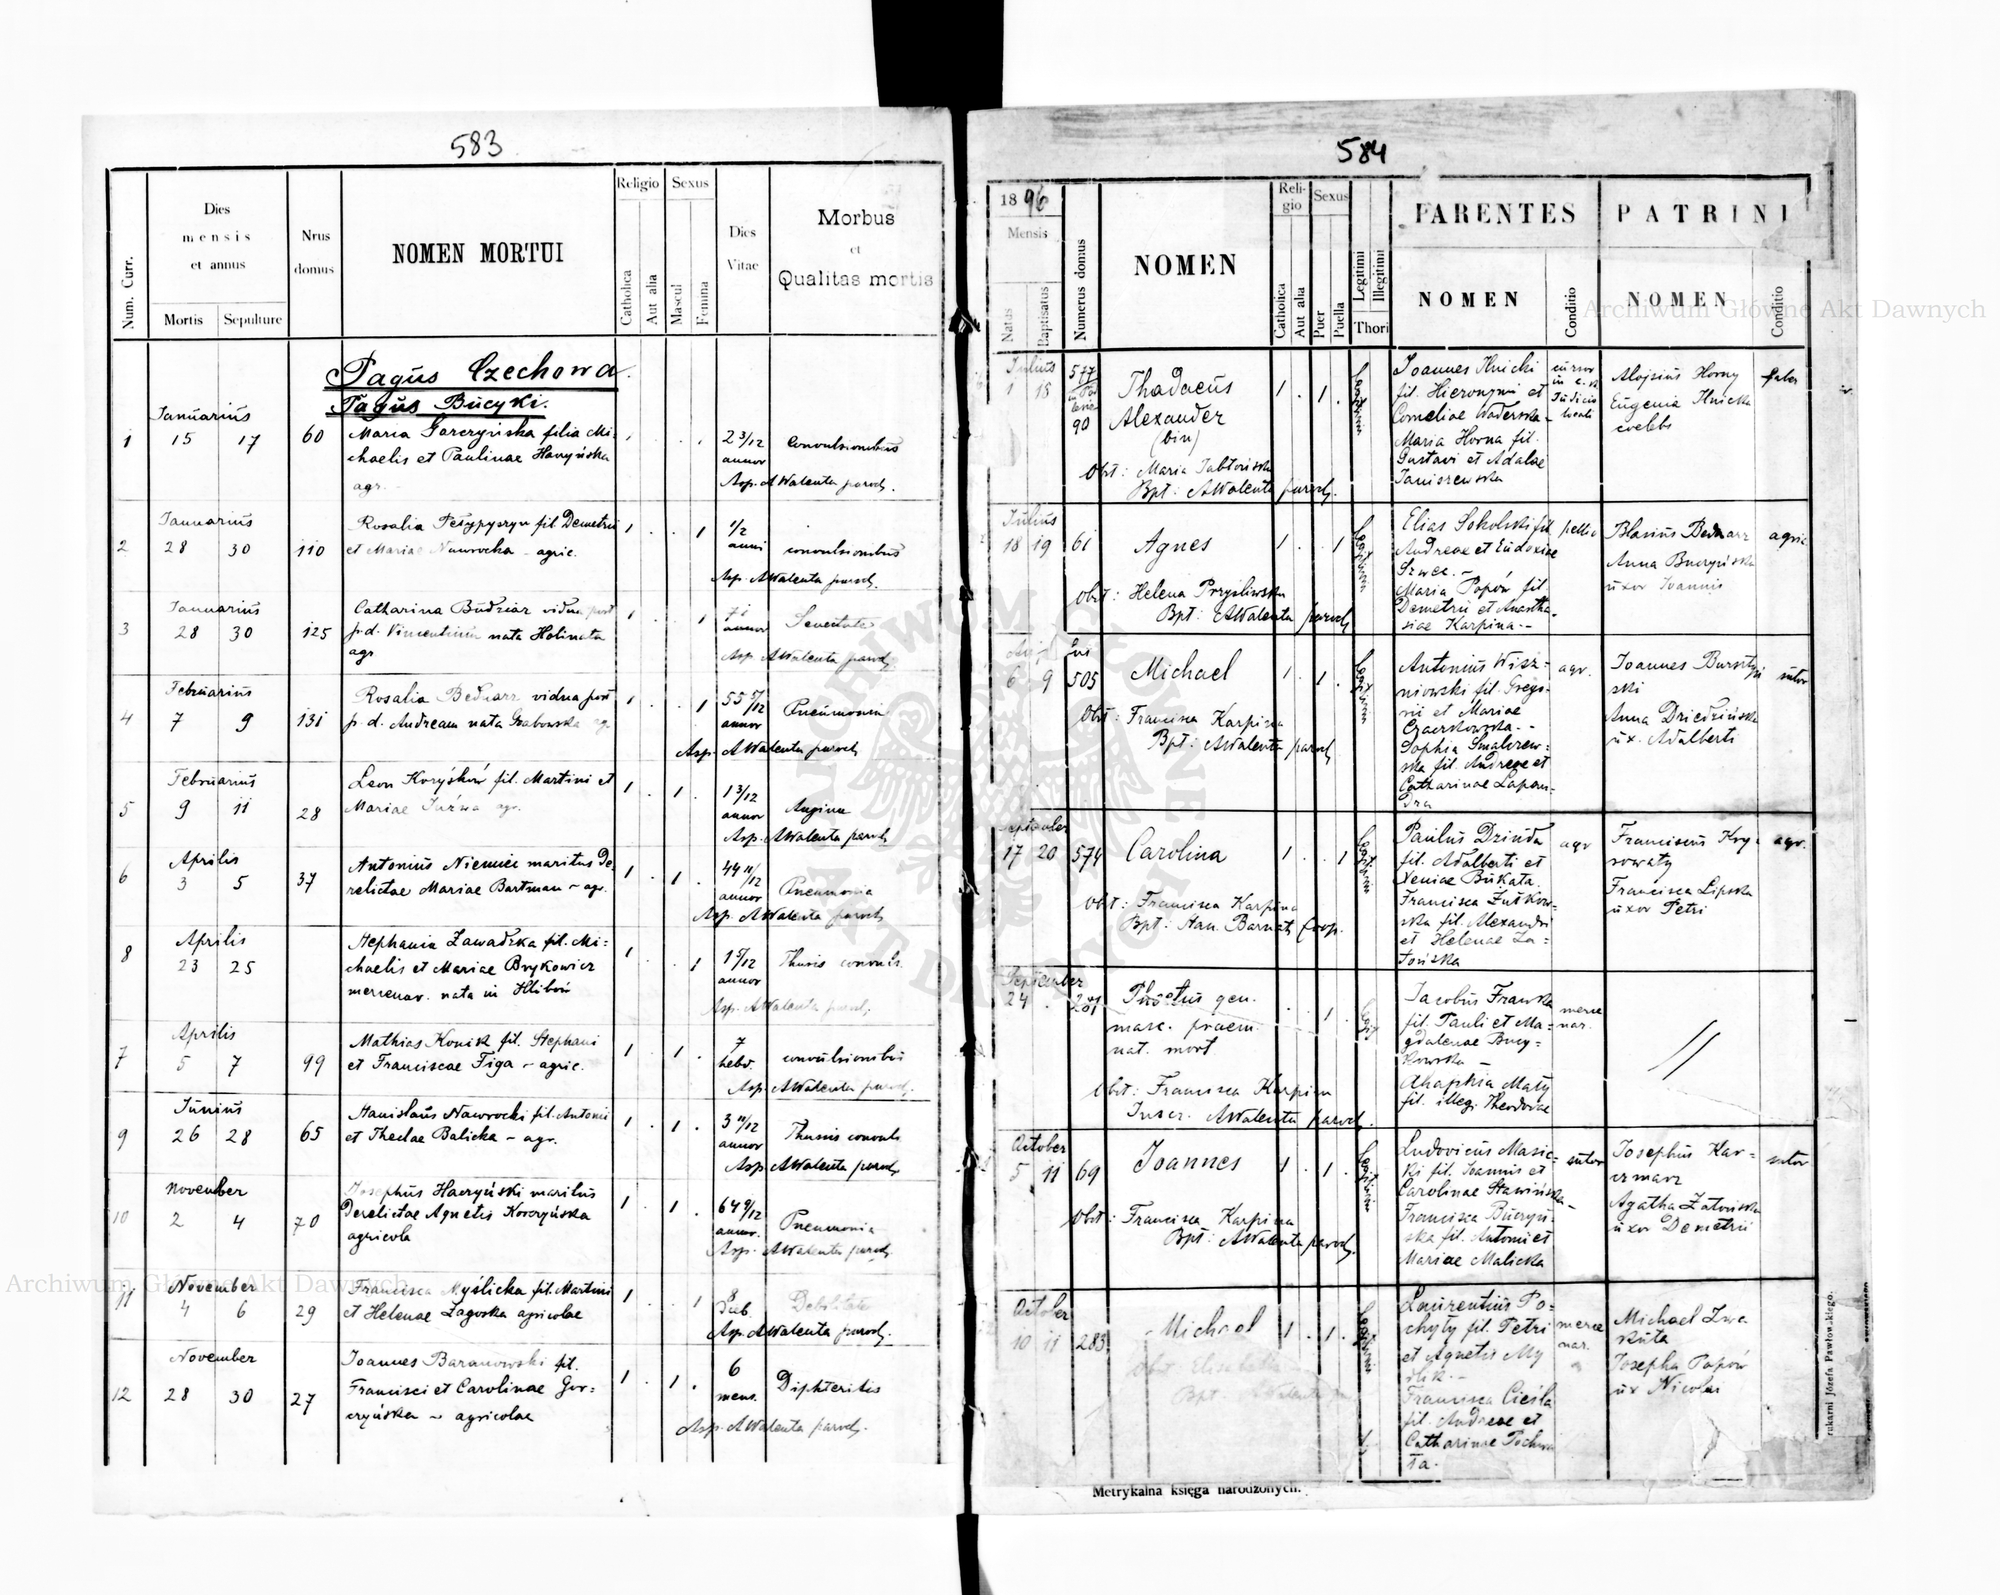 583
Num. Curr.
Dies
mensis
et annus
Mortis
Sepulture
Nrus
domus
NOMEN MORTUI
Religio
Catholica
Aut alia
Sexus
Mascul
Femina
Dies
Vitae
Morbus
et
Qualitas mortis
Pagus Czechowa
Pagus Bucyki.
Januarius
1 15 17 60
Maria Gorczyńska filia Mi-
chaelis et Paulinae
agr.
2 3/12
annor
convulsionibus
Asp. AWalenta paroch.
Januarius
2 28 30 110
Rosalia fil. Demetrii
et Mariae Nawrocka - agric.
1/2
anni
convulsionibus
Asp. AWalenta paroch.
Januarius
3 28 30 125
Catharina Budziar vidua post
p.d. Vincentium nata
agr
annor
Asp. AWalenta paroch
Februarius
4 7 9 131
Rosalia Bednarz vidua post
p.d. Andream nata Grabowska ag.
55 5/12
annor
Pneumonia
Asp. AWalenta paroch
Februarius
5 9 11 28
Leon fil. Martini et
Mariae agr.
1 3/12
annor
Angina
Asp. AWalenta paroch
Aprilis
6 3 5 37
Antonius Niemiec maritus De-
relictae Mariae Bartman - agr.
44 11/12
annor
Pneumonia
Asp. AWalenta paroch
Aprilis
8 23 25
Stephania Zawadzka fil. Mi=
chaelis et Mariae Brykowicz
mercenar. nata in
1 5/12
annor
Tussis convuls.
Asp. AWalenta paroch.
Aprilis
7 5 7 99
Mathias Konik fil. Stephani
et Franciscae Figa - agric.
7
hebd.
convulsionibus
Asp. AWalenta paroch.
Junius
9 26 28 65
Stanislaus Nawrocki fil. Antonii
et Theclae Balicka - agr.
3 11/12
annor
Tussis convuls
Asp. AWalenta paroch
November
10 2 4 70
Josephus maritus
Derelictae Agnetis
agricola
64 9/12
annor.
Pneumonia
Asp. AWalenta paroch.
November
11 4 6 29
Francisca Myślicka fil. Martini
et Helenae Zagorska agricolae
8
Debilitate
Asp. AWalenta paroch.
November
12 28 30 27
Joannes Baranowski fil.
Francisci et Carolinae Gor=
czyńska - agricolae
6
mens.
Diphteritis
Asp. AWalenta paroch.
584
1896
Mensis
Natus
Baptisatus
Numerus domus
NOMEN
Religio
Catholica
Aut alia
Sexus
Puer
Puella
Legitimi
Illegitimi
Thori
PARENTES
NOMEN
Conditio
PATRINI
NOMEN
Conditio
Julius
1 18
577
90
Thadaeus
Alexander
(bin)
Obst: Maria Jabłońska
Bpt: AWalenta paroch.
Joannes Ilnicki
fil. Hieronymi et
Corneliae
Maria Horna fil.
Gustavi et Adalae
Janiszewska
cursor
in c.k.
Judicio
locali
Aloisius Horny
Eugenia Ilnicka
coelebs
faber
Julius
18 19 61
Agnes
Obst: Helena Przysliwska
Bpt: AWalenta paroch
Elias Sokolski fil
Andreae et Eudoxiae
Szwec. -
Maria Popów fil
Demetrii et Anasta-
siae Karpina. -
pellio
Blasius Bednarz
Anna Buczyńska
uxor Joannis
agric
6 9 505
Michael
Obst: Francisca Karpina
Bpt: AWalenta paroch
Antonius Wisz=
niowski fil. Grego-
rii et Mariae
Czaczkowska. -
Sophia Smalcew-
ska fil. Andreae et
Catharinae Lapan-
dra
agr.
Joannes Bursztyń
ski
Anna Dziedzińska
ux. Adalberti
sutor
September
17 20 574
Carolina
Obst: Francisca Karpina
Bpt: Stan. Barnaś Coop.
Paulus Dziuda
fil. Adalberti et
Xeniae Bukata.
Francisca Żułkow-
ska fil. Alexandri
et Helenae Za=
tońska
agr
Franciscus Kry-
sowaty
Francisca Lipska
uxor Petri
agr.
September
24 281
Phoetus gen.
masc. praem.
nat. mort
Obst: Francisca Karpina
Inscr. AWalenta paroch.
Jacobus Franska
fil. Pauli et Ma=
gdalenae Bucy-
kowska -
Ahaphia Mały
fil. illeg. Theodorae
merce
nar.
October
5 11 69
Joannes
Obst: Francisca Karpina
Bpt: AWalenta paroch.
Ludovicus Masie=
ki fil. Joannis et
Carolinae Stawińska-
Francisca Buczyń-
ska fil. Antonii et
Mariae Malicka
sutor
Josephus Kar-
czmarz
Agatha Zatońska
uxor Demetrii
sutor
October
10 11 283
Michael
Obst Elisabetha
Bpt. AWalenta
Laurentius Po=
chyły fil. Petri
et Agnetis My
ślik. -
Francisca Cieśla
fil. Andreae et
Catharinae Pochwa
ła.
merce
nar.
Michael Zwa
Josepha Popów
ux Nicolai
Metrykalna księga narodzonych.
rukarni Józefa Pawłowskiego.
Archiwum Główne Akt Dawnych
Archiwum Główne Akt Dawnych
ARCHIWUM GŁÓWNE AKT DAWNYCH